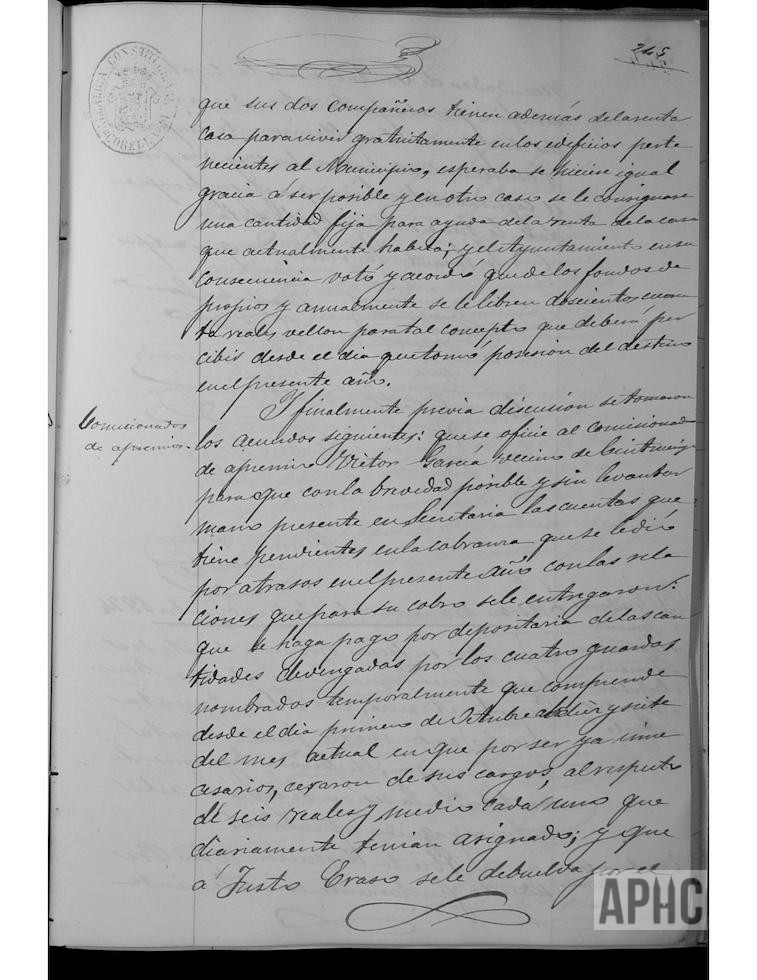 245
que sus dos compañeros tienen además dela renta
casa para vivir gratuitamente en los edificios perte
necientes al Municipio, esperaba se hiciese igual
gracia á ser posible y en otro caso se le consignase
una cantidad fija para ayuda dela renta dela casa
que actualmente habita; y el Ayuntamiento en su
consecuencia votó y acordó que de los fondos de
propios y anualmente se le libren doscientos cuaren
ta reales vellon para tal concepto que deberá per
cibir desde el dia que tomó posesion del destino
en el presente año.
Comisionados
de apremios.
Y finalmente previa discusion se tomaron
los acuerdos siguientes: que se oficie al comisionado
de apremio Victor García vecino de
para que con la brevedad posible y sin levantar
mano presente en Secretaria las cuentas que
tiene pendientes en la cobranza que se le dió
por atrasos en el presente año con las rela
ciones que para su cobro se le entregaron:
que se haga pago por depositaria de las can
tidades devengadas por los cuatro guardas
nombrados temporalmente que comprende
desde el dia primero de Octubre al diez y siete
del mes actual en que por ser ya inne
cesarios, cesaron de sus cargos, al respecto
de seis reales y medio cada uno que
diariamente tenian asignado; y que
á Justo Eraso se le debuelva por el
APHC